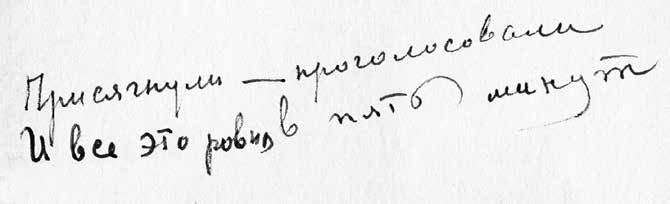 Присягнули — проголосовали
И все это ровно в пять минут